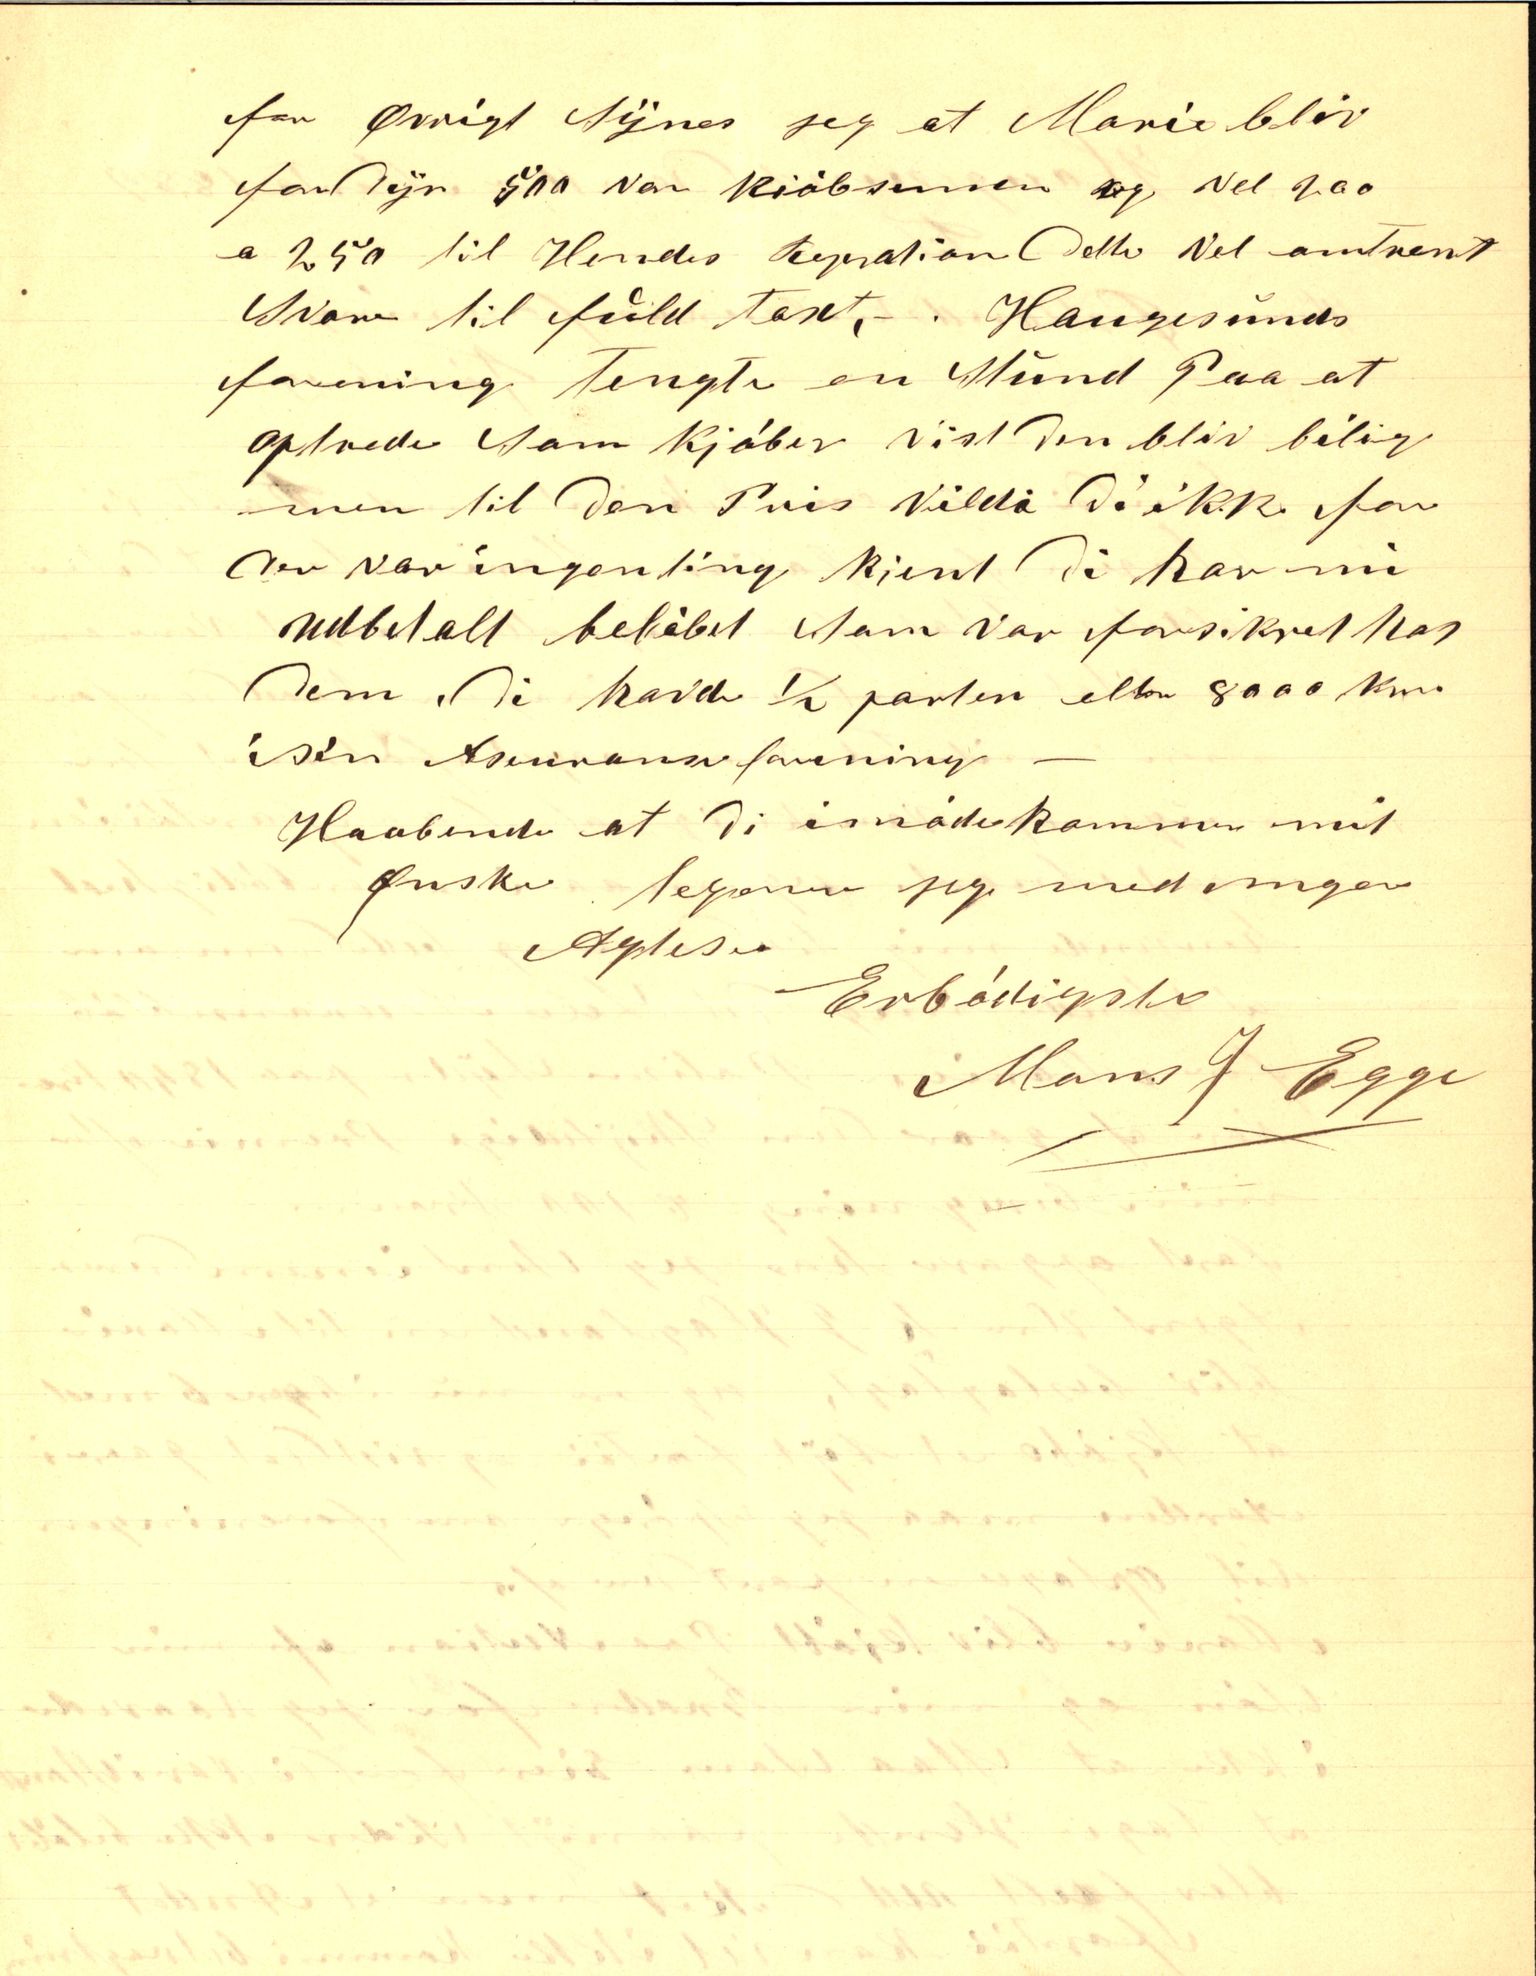 for Øvrigt Synes jeg at Marie blir
for dyr 500 var kiøbsumen og vel paa
a 250 til Hendes Repration Dette Vel omtrent
Svare til fuld taxt, – . Haugesunds
forening Tengte en Stund Paa at
optrede Som kjøber vist den blir bilig
men til den Pris vilde di ikke for
der var ingenting kjent di har nu
udbetalt beløbet Som var forsikret hos
dem . di havde 1/2 parten eller 8000 kr
i sin Asuranse forening –
Haabende at di imødekommer mit
Ønske tegner jeg med megen
Agtelse
Erbødigste
Mons J Egge